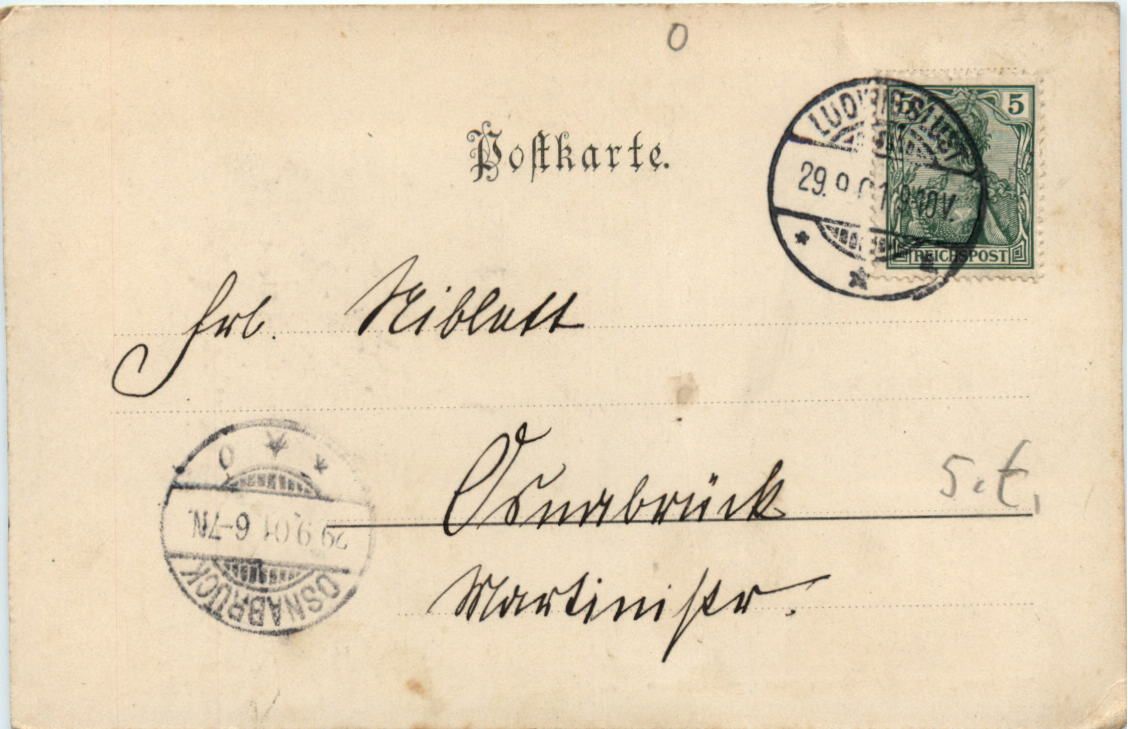 0
Postkarte.
LUDWIGSLUST
29.9.01 9-10V.
5 5
REICHSPOST
Frl. Niblett
Osnabrück
5.t.
Martinistr.
OSNABRÜCK
29.9.01 6-7N.